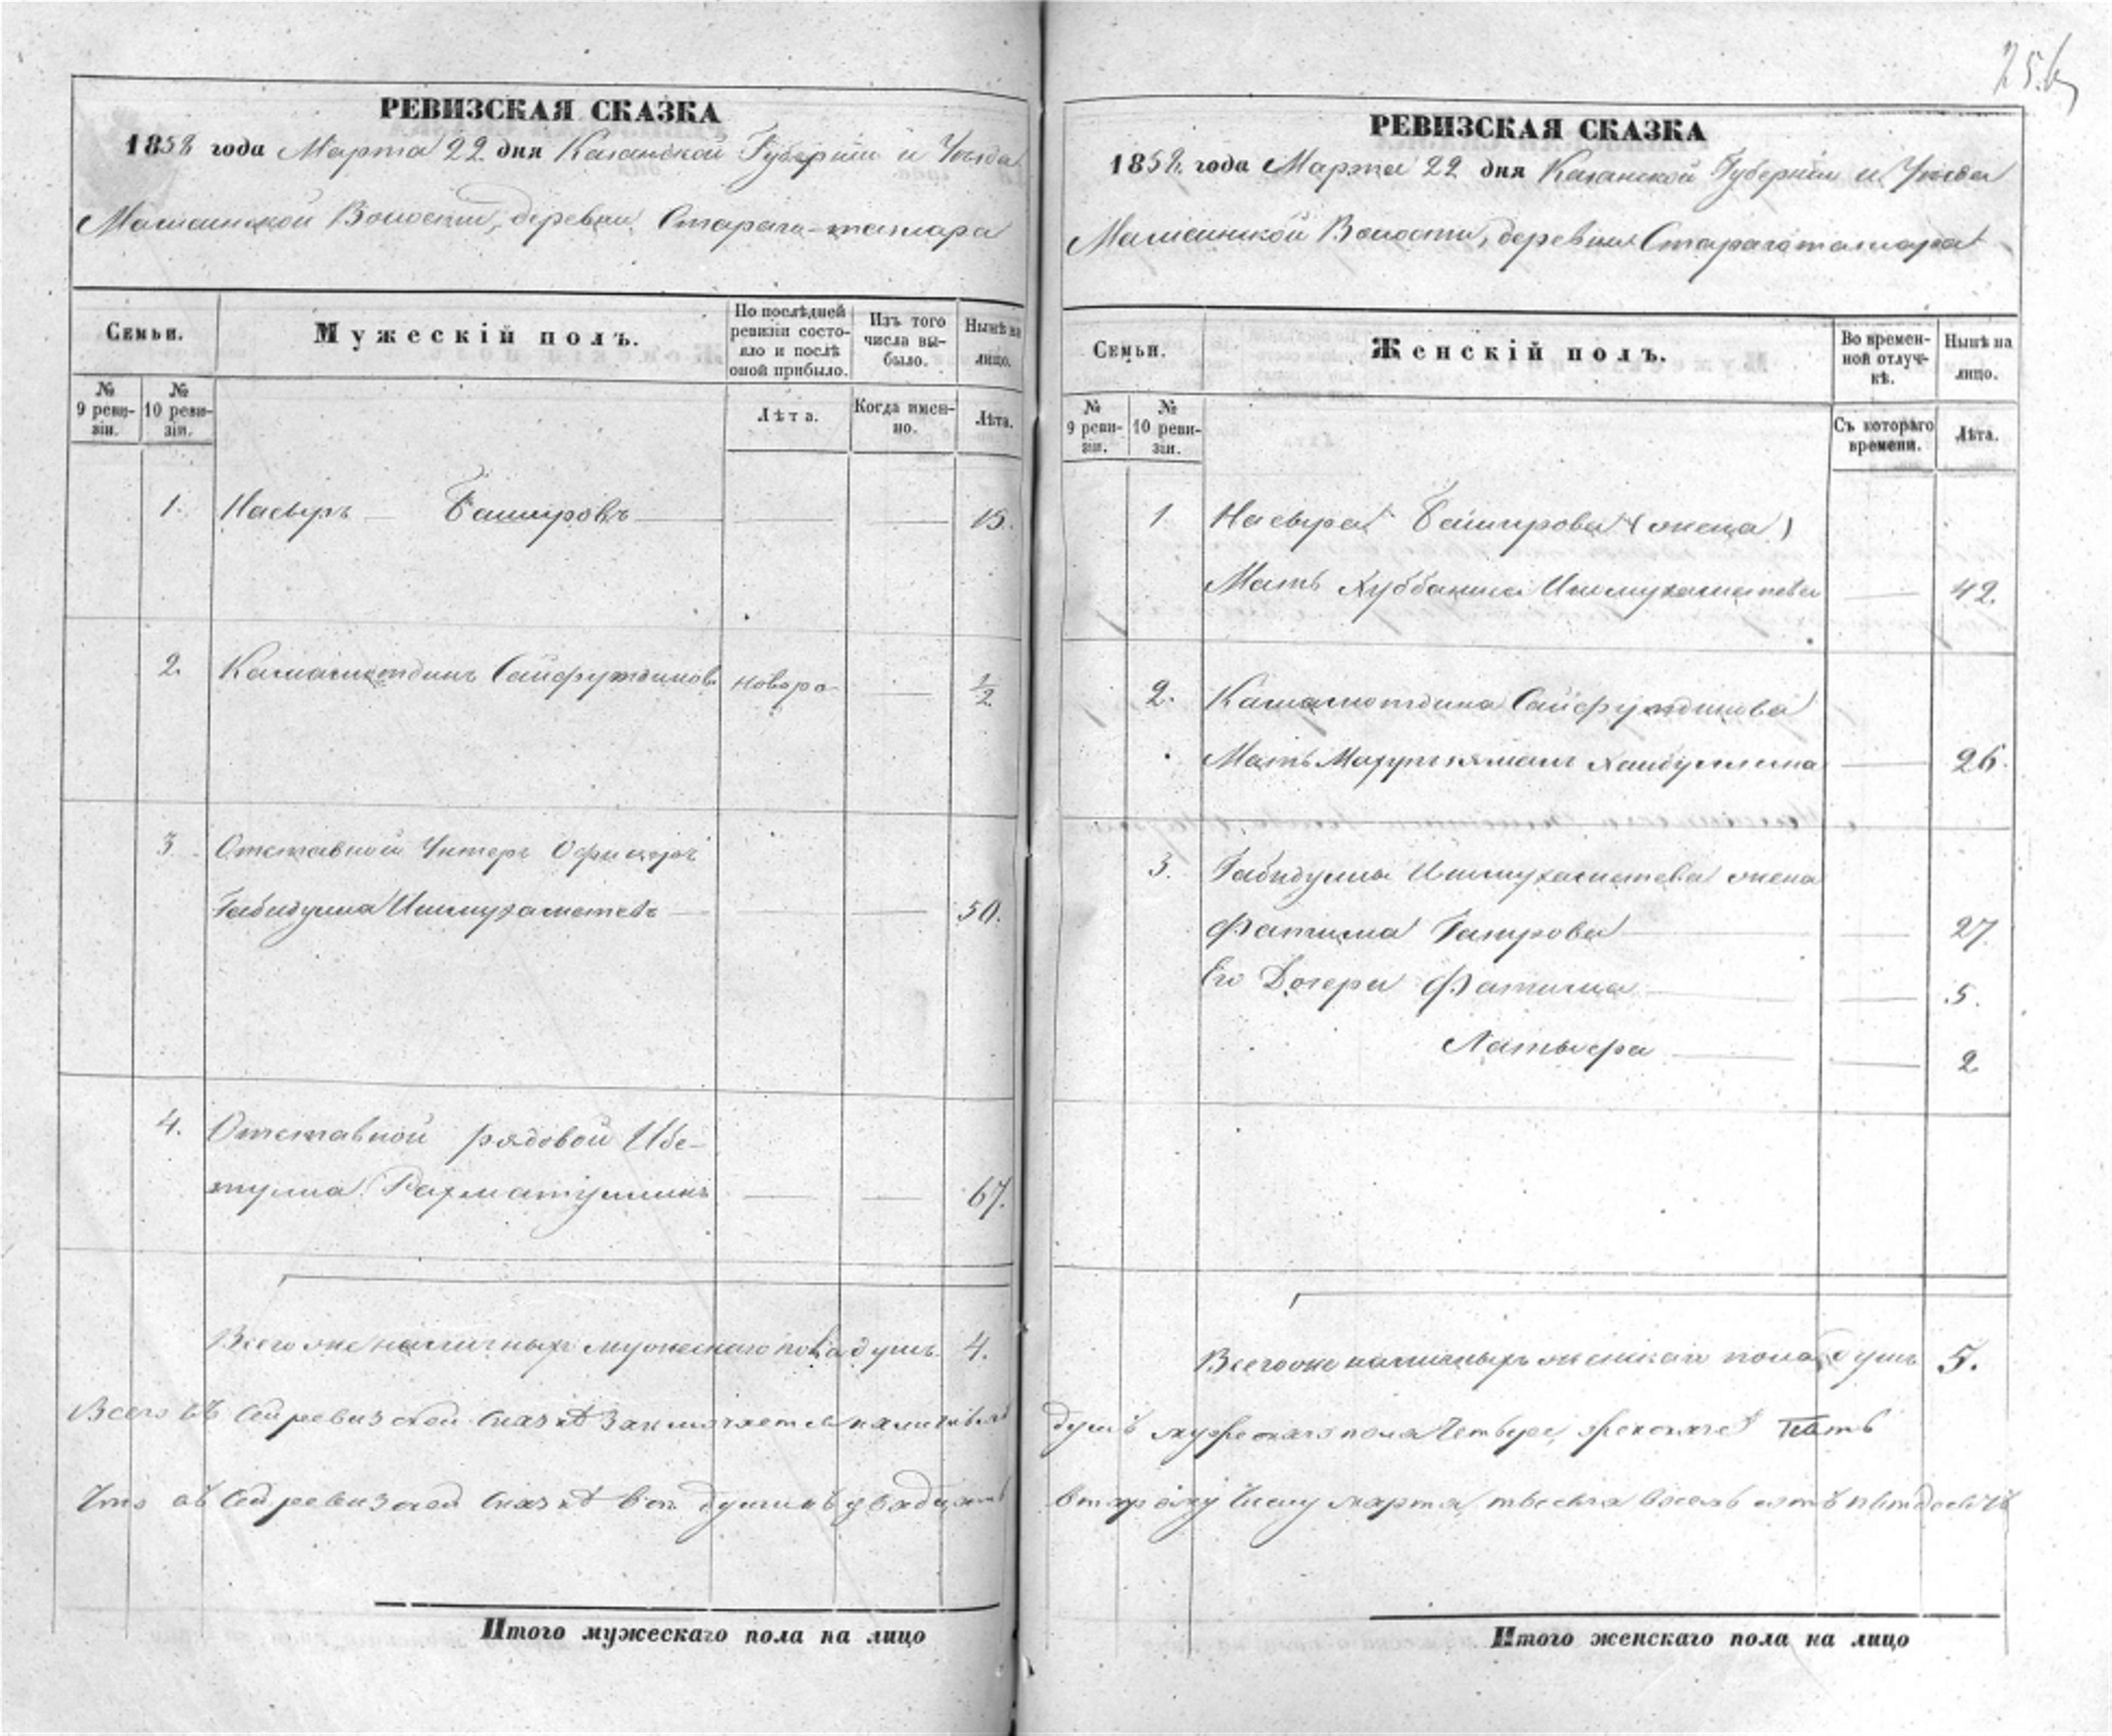 РЕВИЗСКАЯ СКАЗКА
1858 года Марта 22 дня Казанской Губернии и Уезда
Волости, деревни Стараго-тамара
Семьи.
Мужескій полъ.
По послѣдней ревизіи состояло и послѣ оной прибыло.
Изъ того числа выбыло.
Нынѣ на лицо.
№ 9 ревизіи.
№ 10 ревизіи.
Лѣта.
Когда именно.
Лѣта.
1. Насыръ — Башировъ — 15.
2. Камалютдинъ Сайфутдиновъ новоро — 1/2
3. Отставной Унтеръ Офицеръ
Габидулла Ишмухаметевъ — 50.
4. Отставной рядовой Ибе-
тулла Рахматуллинъ — 67.
Всего же наличныхъ мужескаго пола душъ 4.
Всего въ сей ревизской сказкѣ заключается наличныхъ
Что въ сей ревизской сказкѣ двадцать
Итого мужескаго пола на лицо
256
РЕВИЗСКАЯ СКАЗКА
1858 года Марта 22 дня Казанской Губерніи и Уезда
Волости, деревни Стараготамара
Семьи.
Женскій полъ.
Во временной отлучкѣ.
Нынѣ на лицо.
№ 9 ревизіи.
№ 10 ревизіи.
Съ котораго времени.
Лѣта.
1 Насыра Баширова (жена)
Мать Хуббаниса Ишмухаметева — 42.
2. Камалютдина Сайфутдинова
Мать — 26.
3. Габидуллы Ишмухаметева жена
Фатима — 27
Его Дочери Фатима — 5.
Латыфа — 2
Всего же наличныхъ женскаго пола душъ 5.
душъ мужескаго пола четыре, женскаго пять
втораго числа марта тысяча восемь сотъ пятдесятъ
Итого женскаго пола на лицо